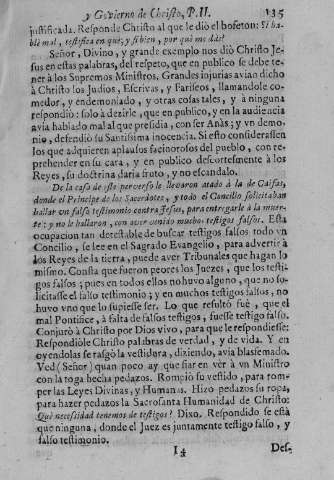 y Govierno de Christo, P. II. 135
justificada. Responde Christo al que le diò el bofeton: Si ha-
blè mal, testifica en que, y si bien, por què me dàs?
Señor, Divino, y grande exemplo nos diò Christo Je-
sus en estas palabras, del respeto, que en publico se debe te-
ner à los Supremos Ministros. Grandes injurias avian dicho
à Christo los Judios, Escrivas, y Fariseos, llamandole co-
medor, y endemoniado, y otras cosas tales, y à ninguna
respondiò: solo à dezirle, que en publico, y en la audiencia
avia hablado mal al que presidia, con ser Anàs; y vn demo-
nio, defendiò su Santissima inocencia. Si esto considerassen
los que adquieren aplausos facinorosos del pueblo, con re-
prehender en su cara, y en publico descortèsmente à los
Reyes, su doctrina daria froto, y no escandalo.
De la casa de este perverso le llevaron atado à la de Caifas,
donde el Principe de los Sacerdotes, y todo el Concilio solicitaban
hallar vn falso testimonio contra Jesus, para entregarle à la muer-
te; y no le hallaron, con aver venido muchos testigos falsos. Esta
ocupacion tan detestable de buscar testigos falsos todo vn
Concilio, se lee en el Sagrado Evangelio, para advertir à
los Reyes de la tierra, puede aver Tribunales que hagan lo
mismo. Consta que fueron peores los Juezes, que los testi-
gos falsos; pues en todos ellos no huvo alguno, que no so-
licitasse el falso testimonio; y en muchos testigos falsos, no
huvo vno que lo supiesse ser. Lo que resultò fuè, que el
mal Pontifice, à falta de testigos falsos, fuesse testigo falso.
Conjurò à Christo por Dios vivo, para que le respondiesse:
Respondiòle Christo palabras de verdad, y de vida. Y en
oyendolas se rasgò la vestidura, diziendo, avia blasfemado.
Ved (Señor) quan poco ay que fiar en vèr à vn Ministro
con la toga hecha pedazos. Rompiò su vestido, para rom-
per las Leyes Divinas, y Humanas. Hizo pedazos su ropa,
para hazer pedazos la Sacrosanta Humanidad de Christo:
Què necessidad tenemos de testigos? Dixo. Respondido se està
que ninguna, donde el Juez es juntamente testigo falso, y
falso testimonio.
I4 Des-